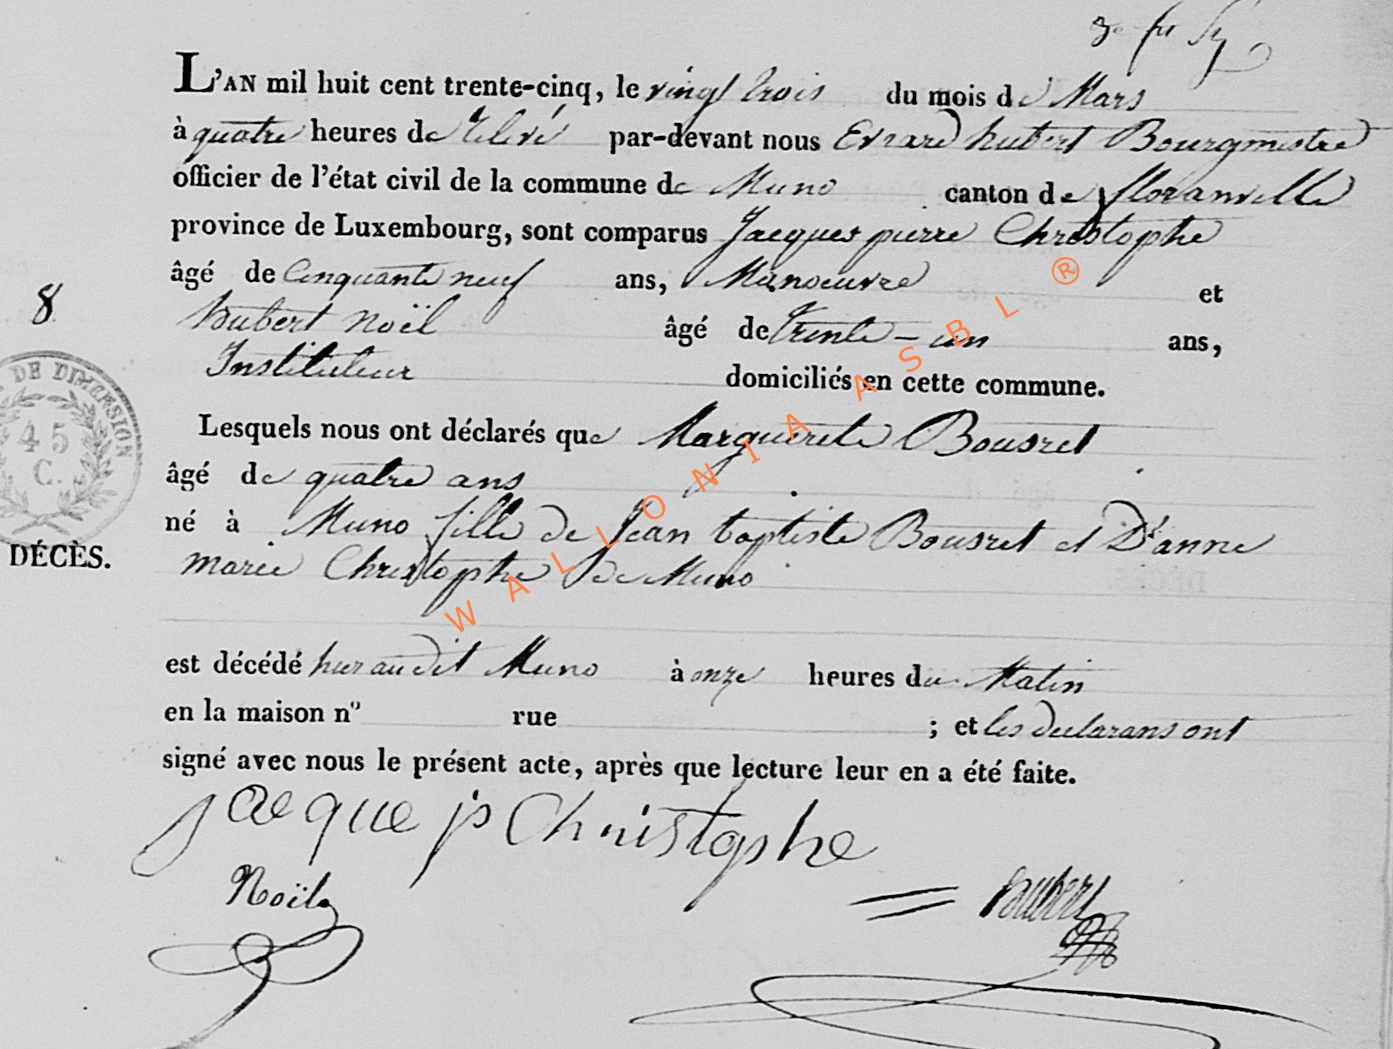 L'AN mil huit cent trente-cinq, le vingt trois du mois de Mars
à quatre heures de relevé par-devant nous Evrard hubert Bourgmestre
officier de l'état civil de la commune de Muno canton de floranville
province de Luxembourg, sont comparus Jacques pierre Christophe
âgé de Cinquante neuf ans, Manoeuvre et
8
hubert Noël âgé de trente-un ans,
Instituteur domiciliés en cette commune.
DE DIMENSION
45
C.
Lesquels nous ont déclarés que Marguerite Bousret
âgé de quatre ans
né à Muno fille de Jean baptiste Bousret et D'anne
DÉCÈS.
marie Christophe de Muno
est décédé hier audit Muno à onze heures du Matin
en la maison nº rue ; et les declarans ont
signé avec nous le présent acte, après que lecture leur en a été faite.
jacque jp Christophe
Noël
WALLONIA ASBL ®